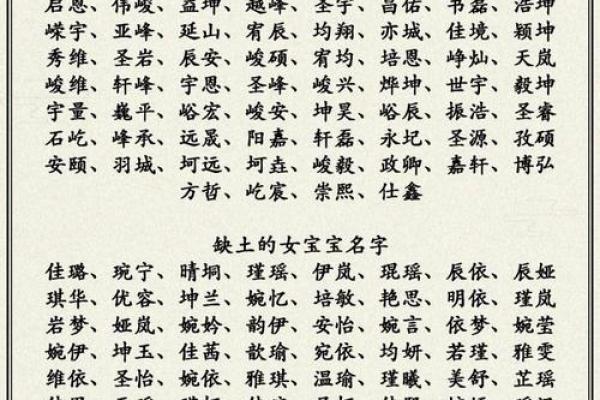 启恩、伟峻、益坤、越峰、圣宇、昌佑、书磊、浩坤
嵘宇、亚峰、延山、宥辰、均翔、亦城、佳境、颖坤
秀维、圣岩、辰安、峻硕、宥均、培恩、峥灿、天岚
峻维、轩峰、宇恩、圣峰、峻兴、烨坤、世宇、毅坤
宇量、巍平、峪宏、峻安、坤昊、峪辰、振浩、圣睿
石屹、峰承、远晟、阳嘉、轩磊、永圮、圣源、孜硕
安颐、羽城、坷远、坷垚、峻毅、政卿、嘉轩、博弘
方哲、屹宸、崇熙、仕鑫
缺土的女宝宝名字
佳璐、琬宁、晴垌、瑾瑶、伊岚、琨瑶、辰依、辰娅
琪华、优容、坤兰、婉忆、培敏、艳思、明依、瑾岚
岩梦、娅岚、婉妗、韵伊、安怡、婉言、依梦、婉莹
婉伊、坤玉、佳茜、歆瑜、宛依、均妍、若瑾、雅雯
维依、圣怡、婉依、雅琪、温瑜、瑾曦、美舒、芷瑶